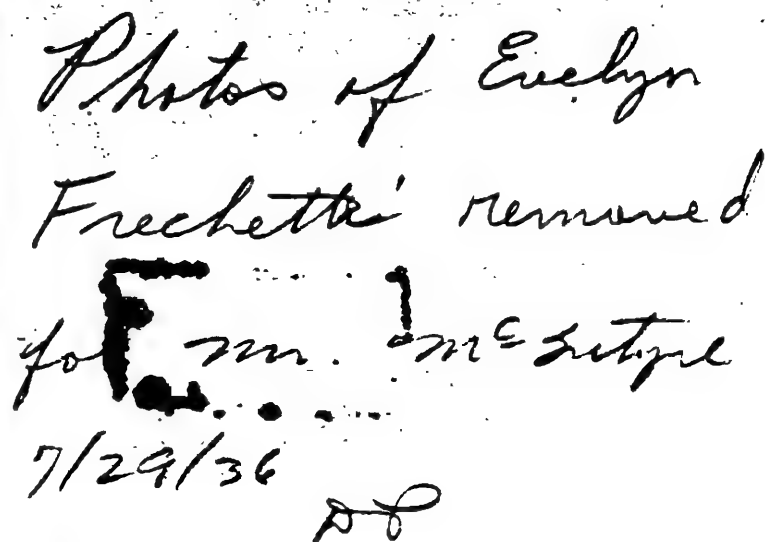 Photos of Evelyn
Frechette removed
for Mr. McIntyre
7/29/36